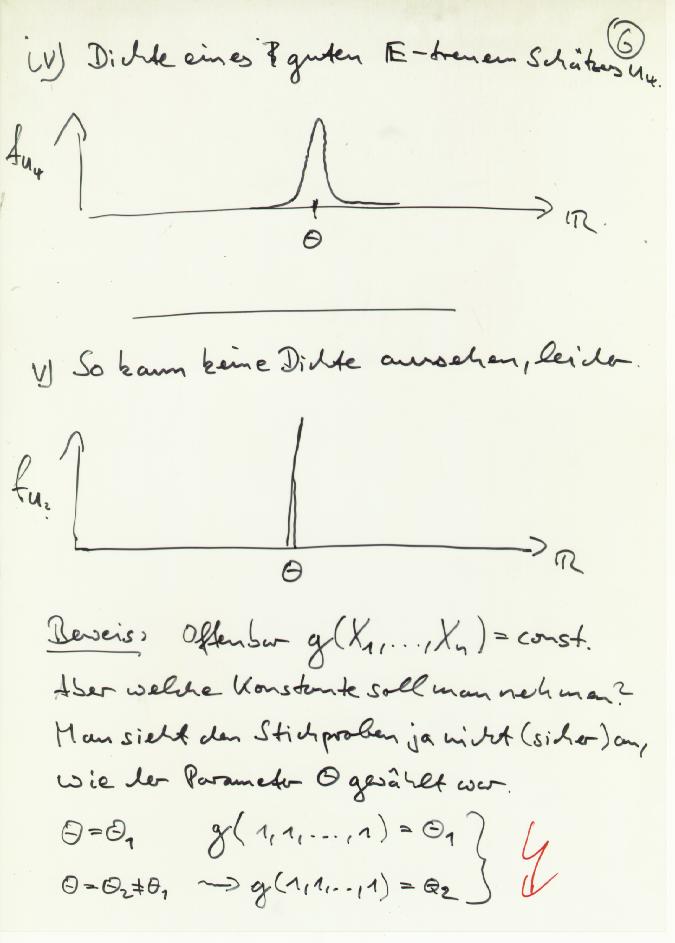 6
iv) Dichte eines guten E-treuen Schätzers U₄.
f_U₄
ℝ.
Θ
v) So kann keine Dichte aussehen, leider.
f_U?
ℝ
Θ
Beweis: Offenbar g(X₁,...,Xₙ) = const.
Aber welche Konstante soll man nehmen?
Man sieht den Stichproben ja nicht (sicher) an,
wie der Parameter Θ gewählt war.
Θ=Θ₁ g(1,1,...,1) = Θ₁
Θ=Θ₂≠Θ₁ ⇝ g(1,1,..,1) = Θ₂